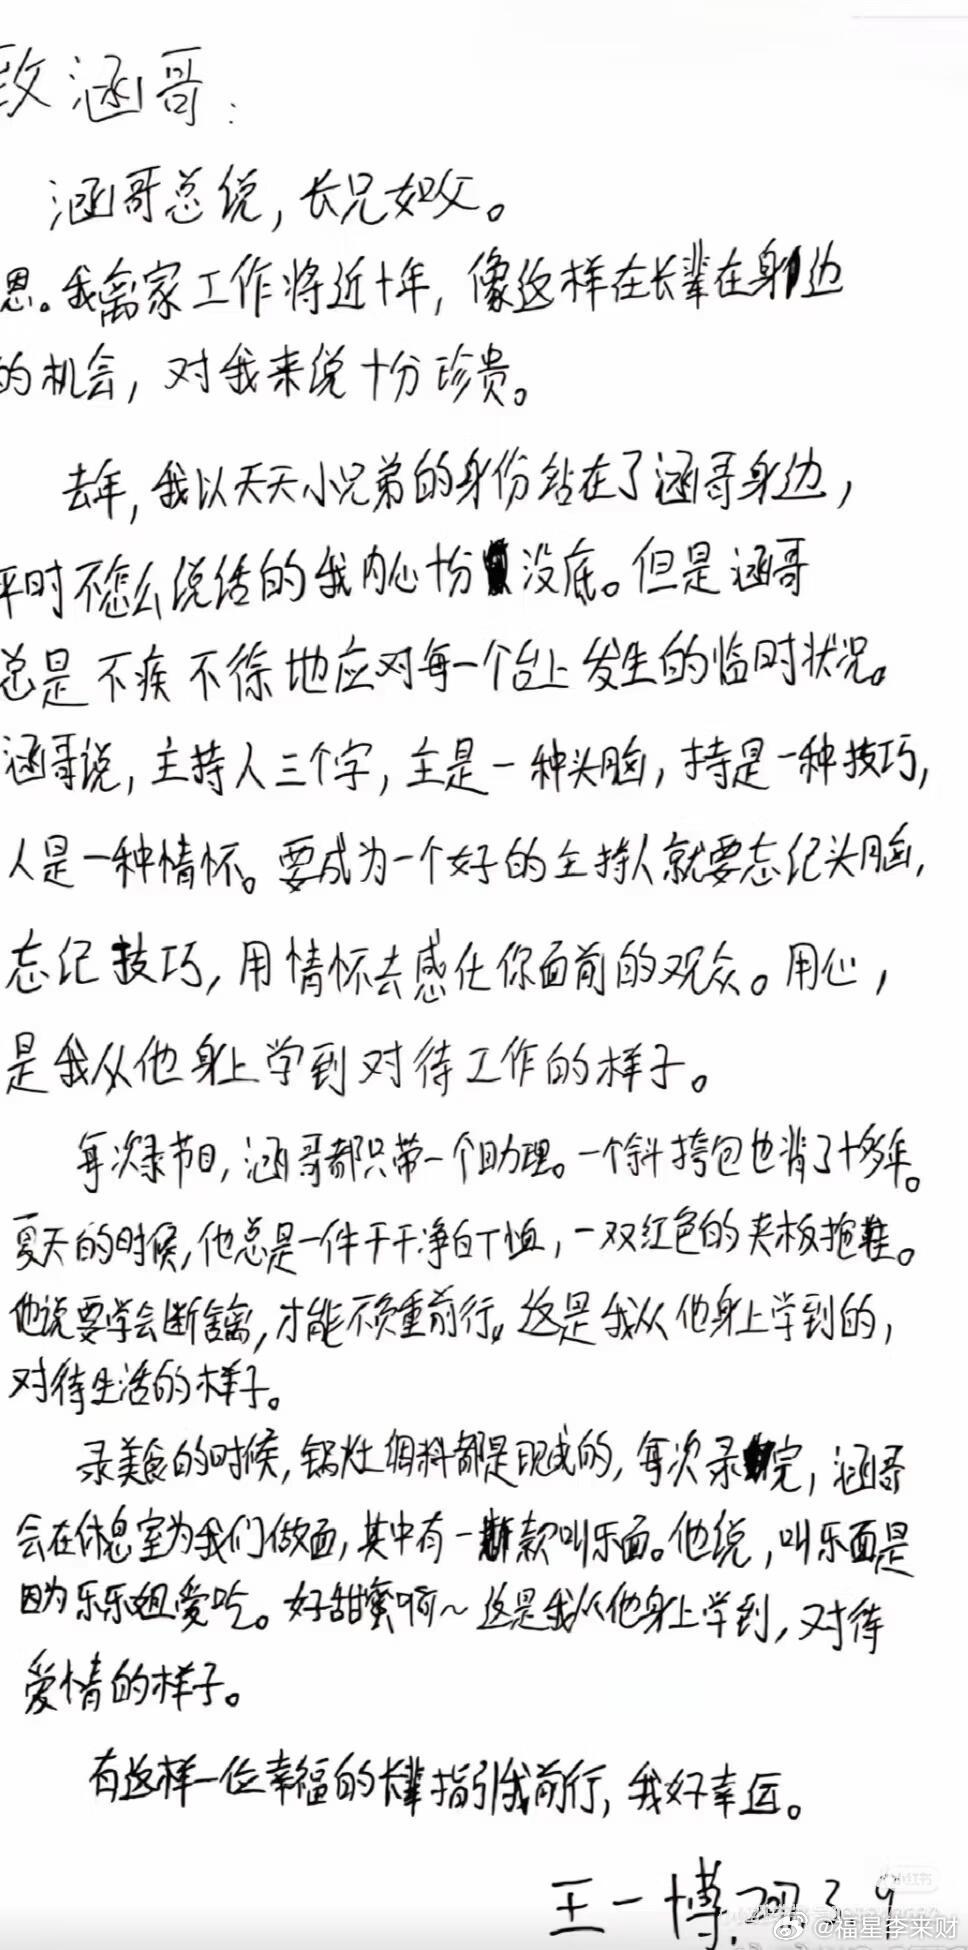 致涵哥:
涵哥总说,长兄如父。
恩。我离家工作将近十年,像这样在长辈在身边
的机会,对我来说十分珍贵。
去年,我以天天小兄弟的身份站在了涵哥身边,
平时不怎么说话的我内心十分没底。但是涵哥
总是不疾不徐地应对每一个台上发生的临时状况。
涵哥说,主持人三个字,主是一种头脑,持是一种技巧,
人是一种情怀。要成为一个好的主持人就要忘记头脑,
忘记技巧,用情怀去感化你面前的观众。用心,
是我从他身上学到对待工作的样子。
每次录节目,涵哥都只带一个助理。一个斜挎包也背了十多年。
夏天的时候,他总是一件干干净白T恤,一双红色的夹板拖鞋。
他说要学会断舍离,才能不负重前行。这是我从他身上学到的,
对待生活的样子。
录美食的时候,锅灶调料都是现成的,每次录完,涵哥
会在休息室为我们做面,其中有一款叫乐面。他说,叫乐面是
因为乐乐姐爱吃。好甜蜜啊~这是我从他身上学到,对待
爱情的样子。
有这样一位幸福的长辈指引我前行,我好幸运。
王一博
小红书
@福星李来财